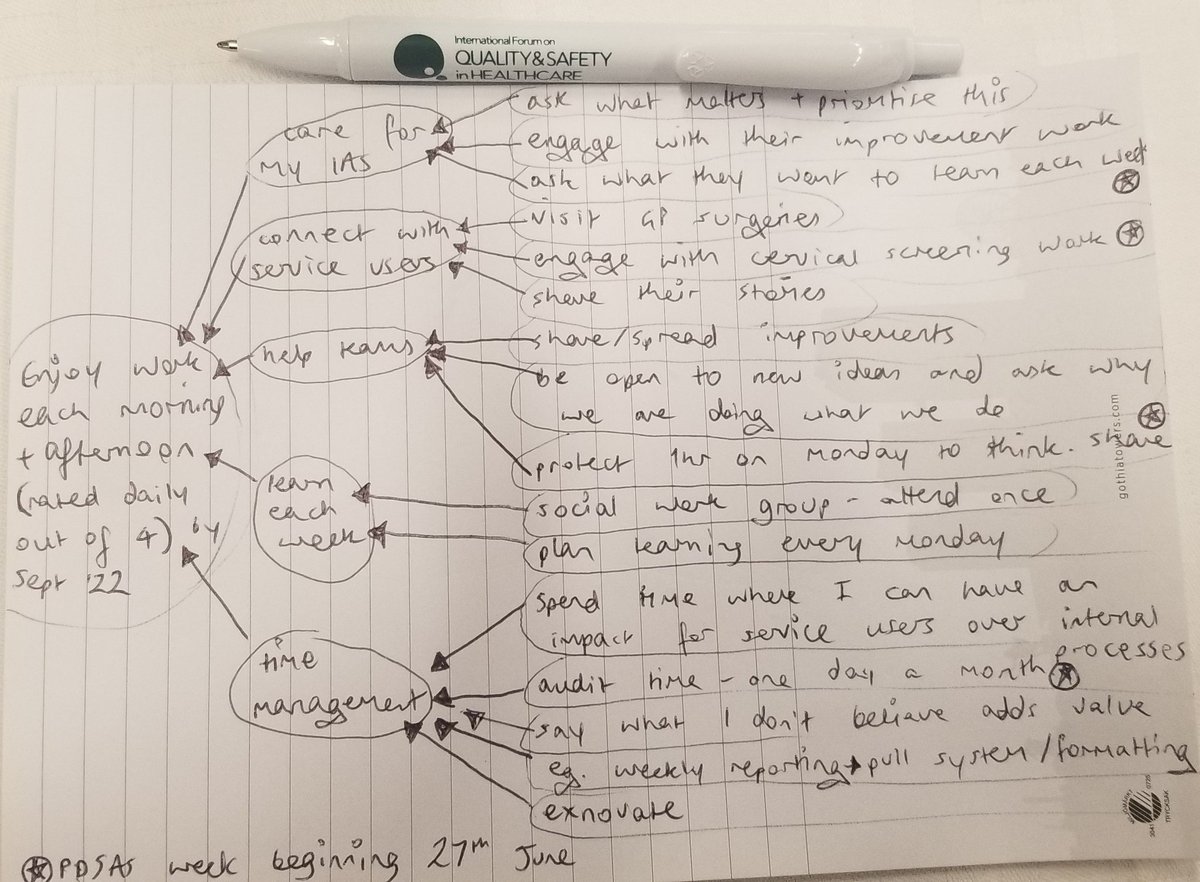 International Forum on
QUALITY & SAFETY
in HEALTHCARE
care for
my IAs
ask what matters + prioritise this
engage with their improvement work
ask what they want to learn each week
connect with
service users
visit GP surgeries
engage with cervical screening work
share their stories
help teams
share/spread improvements
be open to new ideas and ask why
we are doing what we do
protect 1hr on Monday to think. share
Enjoy work
each morning
+ afternoon
(rated daily
out of 4) by
Sept '22
learn
each
week
social work group - attend once
plan learning every Monday
time
management
spend time where I can have an
impact for service users over internal
processes
audit time - one day a month
say what I don't believe adds value
eg. weekly reporting → pull system/formatting
exnovate
PDSAs week beginning 27th June
gothiatowers.com
3041 0725
TRYCKSAK